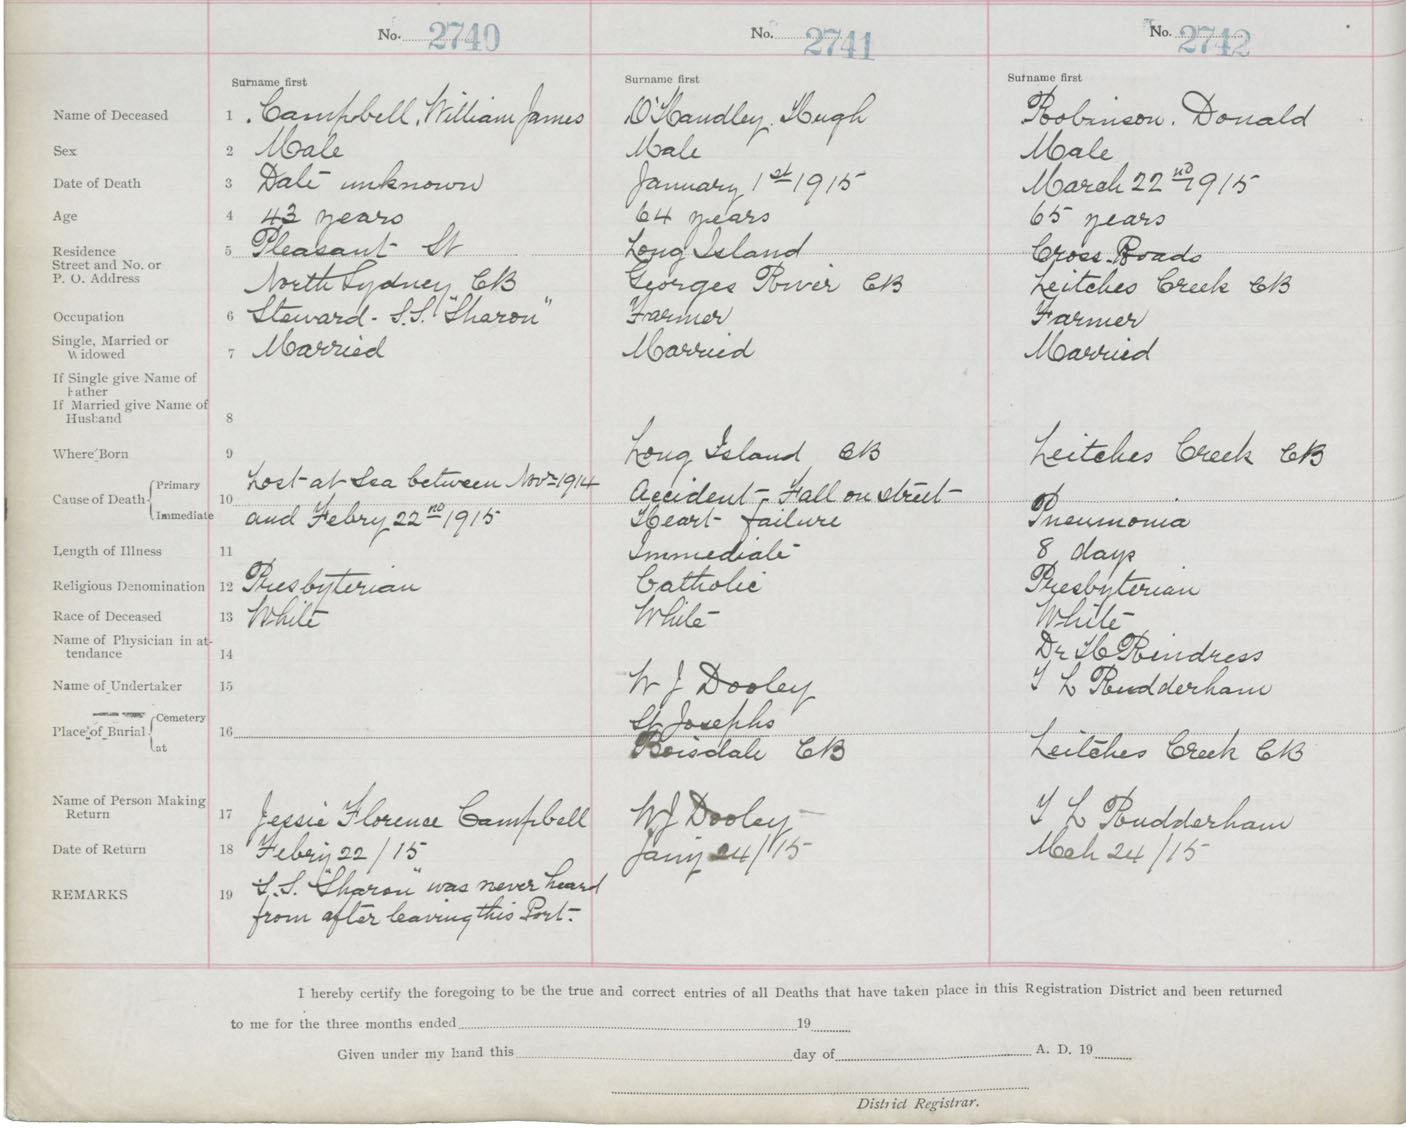 No. 2740
No. 2741
No. 2742
Surname first
Surname first
Surname first
Name of Deceased 1 Campbell, William James O'Handley, Hugh Robinson, Donald
Sex 2 Male Male Male
Date of Death 3 Date unknown January 1st 1915 March 22nd 1915
Age 4 43 years 64 years 65 years
Residence 5 Pleasant St Long Island Cross Roads
Street and No. or
P. O. Address North Sydney CB Georges River CB Leitches Creek CB
Occupation 6 Steward - S.S. "Sharon" Farmer Farmer
Single, Married or
Widowed 7 Married Married Married
If Single give Name of
Father
If Married give Name of
Husband 8
Where Born 9 Long Island CB Leitches Creek CB
Cause of Death Primary 10 Lost at Sea between Nov 1914 Accident - Fall on street
Immediate and Febry 22nd 1915 Heart failure Pneumonia
Length of Illness 11 Immediate 8 days
Religious Denomination 12 Presbyterian Catholic Presbyterian
Race of Deceased 13 White White White
Name of Physician in at-
tendance 14 Dr H Rindress
Name of Undertaker 15 W J Dooley T L Rudderham
Place of Burial Cemetery 16 St Josephs
at Boisdale CB Leitches Creek CB
Name of Person Making
Return 17 Jessie Florence Campbell W J Dooley T L Rudderham
Date of Return 18 Febry 22/15 Jany 24/15 Mch 24/15
REMARKS 19 S.S. "Sharon" was never heard
from after leaving this Port.
I hereby certify the foregoing to be the true and correct entries of all Deaths that have taken place in this Registration District and been returned
to me for the three months ended 19
Given under my hand this day of A. D. 19
District Registrar.